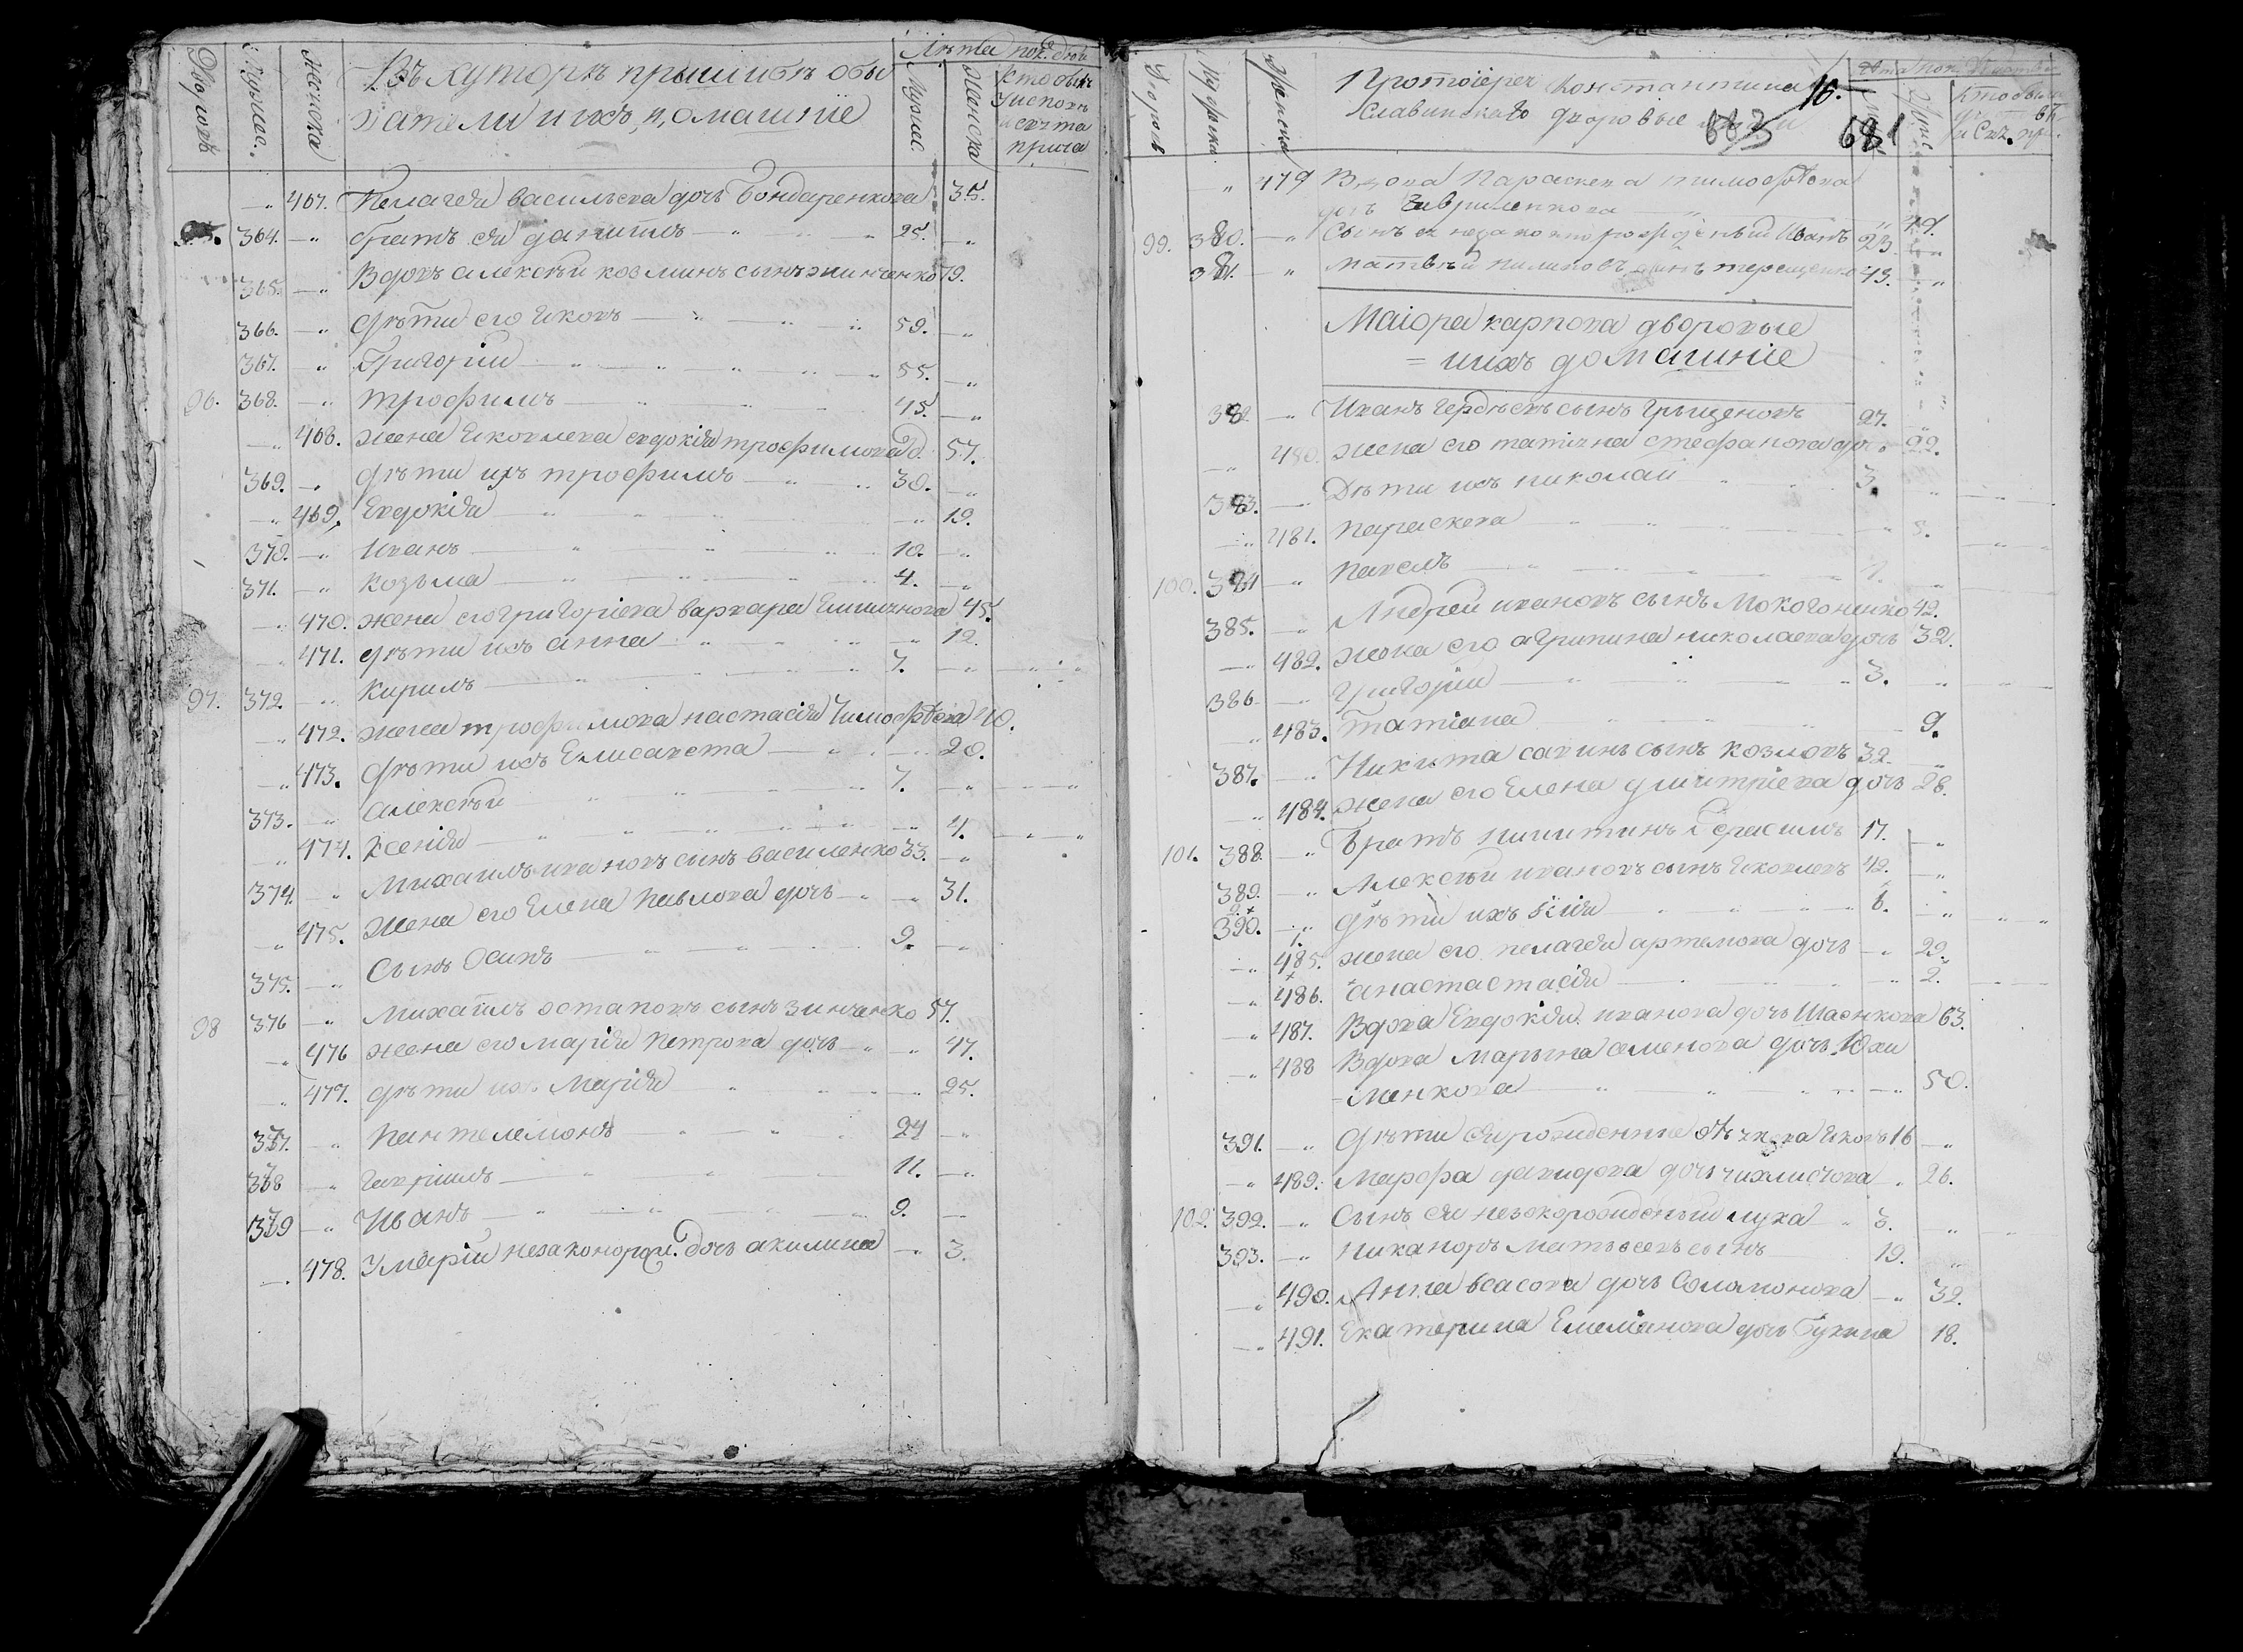 Дворовъ
Мужес.
Женска
Въ хуторѣ пришибѣ обы
ватели и ихъ домашніе
Лѣта
Мужес.
Женска
кто былъ
у исповѣ
и св: та
прича
407. Пелагея васильева дочь Бондаренкова 35.
364. братъ ея данiилъ 25.
365. Вдовъ алексѣй козминъ сынъ зинченко 79.
366. Дѣти его Яковъ 59.
367. Григорій 55.
96. 368. трофимъ 45.
468. жена Яковлева евдокія трофимова д. 57.
369. дѣти ихъ трофимъ 30.
469. Евдокія 19.
370. Иванъ 10.
371. козьма 4.
470. жена его григоріева варвара 45.
471. дѣти ихъ анна 12.
97. 372. Кирилъ 7.
472. жена трофимова настасія тимофѣева 40.
473. Дѣти ихъ Елисавета 20.
373. алексѣй 7.
474. Ксенія 4.
374. Михаилъ ивановъ сынъ василенко 33.
475. Жена его Елена павлова дочь 31.
375. Сынъ Осипъ 9.
98 376 Михаилъ остаповъ сынъ зинченко 57.
476 жена его Марія Петрова дочь 47.
477. дѣти ихъ Марія 25.
377. Пантелемонъ 24
378 Гавріилъ 11.
379 Иванъ 9.
478. У маріи незаконорож. дочь акилина 3.
Дворовъ
Мужеска
Женска
Протоіерея Константина
Славинскаго дворовые
16.
683
681
кто былъ
479 Вдова Параскева тимофѣева
дочь Гавриленкова 49.
99. 380. Сынъ ея незаконнорожденый Иванъ 23.
381. Матвѣй пилиповъ сынъ терещенко 43.
Маіора карпова дворовые
= и ихъ домашніе
382 Иванъ сынъ Грыценовъ 27.
480. жена его татіяна стефанова доч. 22.
383. Дѣти ихъ николай 3.
481. параскева 5.
100. 384 павелъ
385. Андрей ивановъ сынъ Мокогоненко 42.
482. жена его агрипина николаева дочь 32.
386 Григорій 3.
483. татіана 9.
387. Никита савинъ сынъ козловъ 32.
484. жена его Елена дмитріева дочь 28.
101. 388. Братъ никитинъ Герасимъ 17.
389. Алексѣй ивановъ сынъ Яковлевъ 42.
390. дѣти ихъ илія 6.
485. жена его пелагея артемова дочь 22.
486. анастастасія 2.
487. Вдова Евдокія иванова дочь Шаенкова 63.
488 Вдова Марина семенова дочь Юхи
-менкова 50.
391. Дѣти ея Яковъ 16
489. Марфа давидова дочь 26.
102. 392. Сынъ ея лука 3.
393. никаноръ Матвеевъ сынъ 19.
490. Анна власова дочь Соломонова 32.
491. Екатерина Емеліянова дочь 18.